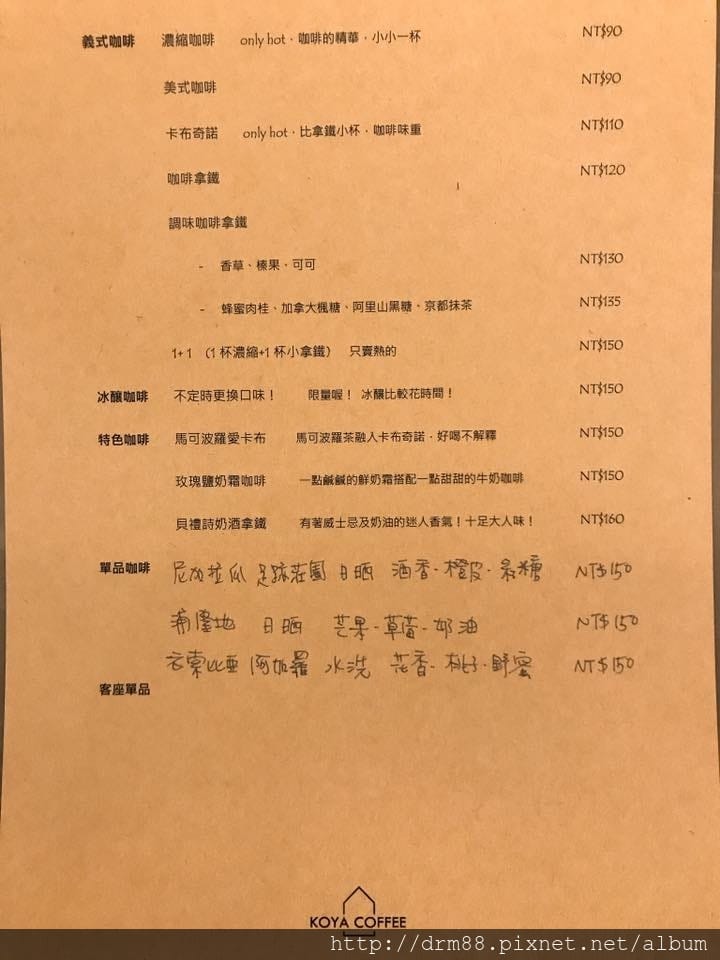 義式咖啡 濃縮咖啡 only hot．咖啡的精華．小小一杯 NT$90
美式咖啡 NT$90
卡布奇諾 only hot．比拿鐵小杯．咖啡味重 NT$110
咖啡拿鐵 NT$120
調味咖啡拿鐵
- 香草、榛果、可可 NT$130
- 蜂蜜肉桂、加拿大楓糖、阿里山黑糖、京都抹茶 NT$135
1+1 （1杯濃縮+1杯小拿鐵） 只賣熱的 NT$150
冰釀咖啡 不定時更換口味！ 限量喔！ 冰釀比較花時間！ NT$150
特色咖啡 馬可波羅愛卡布 馬可波羅茶融入卡布奇諾．好喝不解釋 NT$150
玫瑰鹽奶霜咖啡 一點鹹鹹的鮮奶霜搭配一點甜甜的牛奶咖啡 NT$150
貝禮詩奶酒拿鐵 有著威士忌及奶油的迷人香氣！十足大人味！ NT$160
單品咖啡 尼加拉瓜 足跡莊園 日晒 酒香-橙皮-黑糖 NT$150
蒲隆地 日晒 芒果-草莓-奶油 NT$150
衣索比亞 阿茹羅 水洗 花香-桃子-野蜜 NT$150
客座單品
KOYA COFFEE
http://drm88.pixnet.net/album